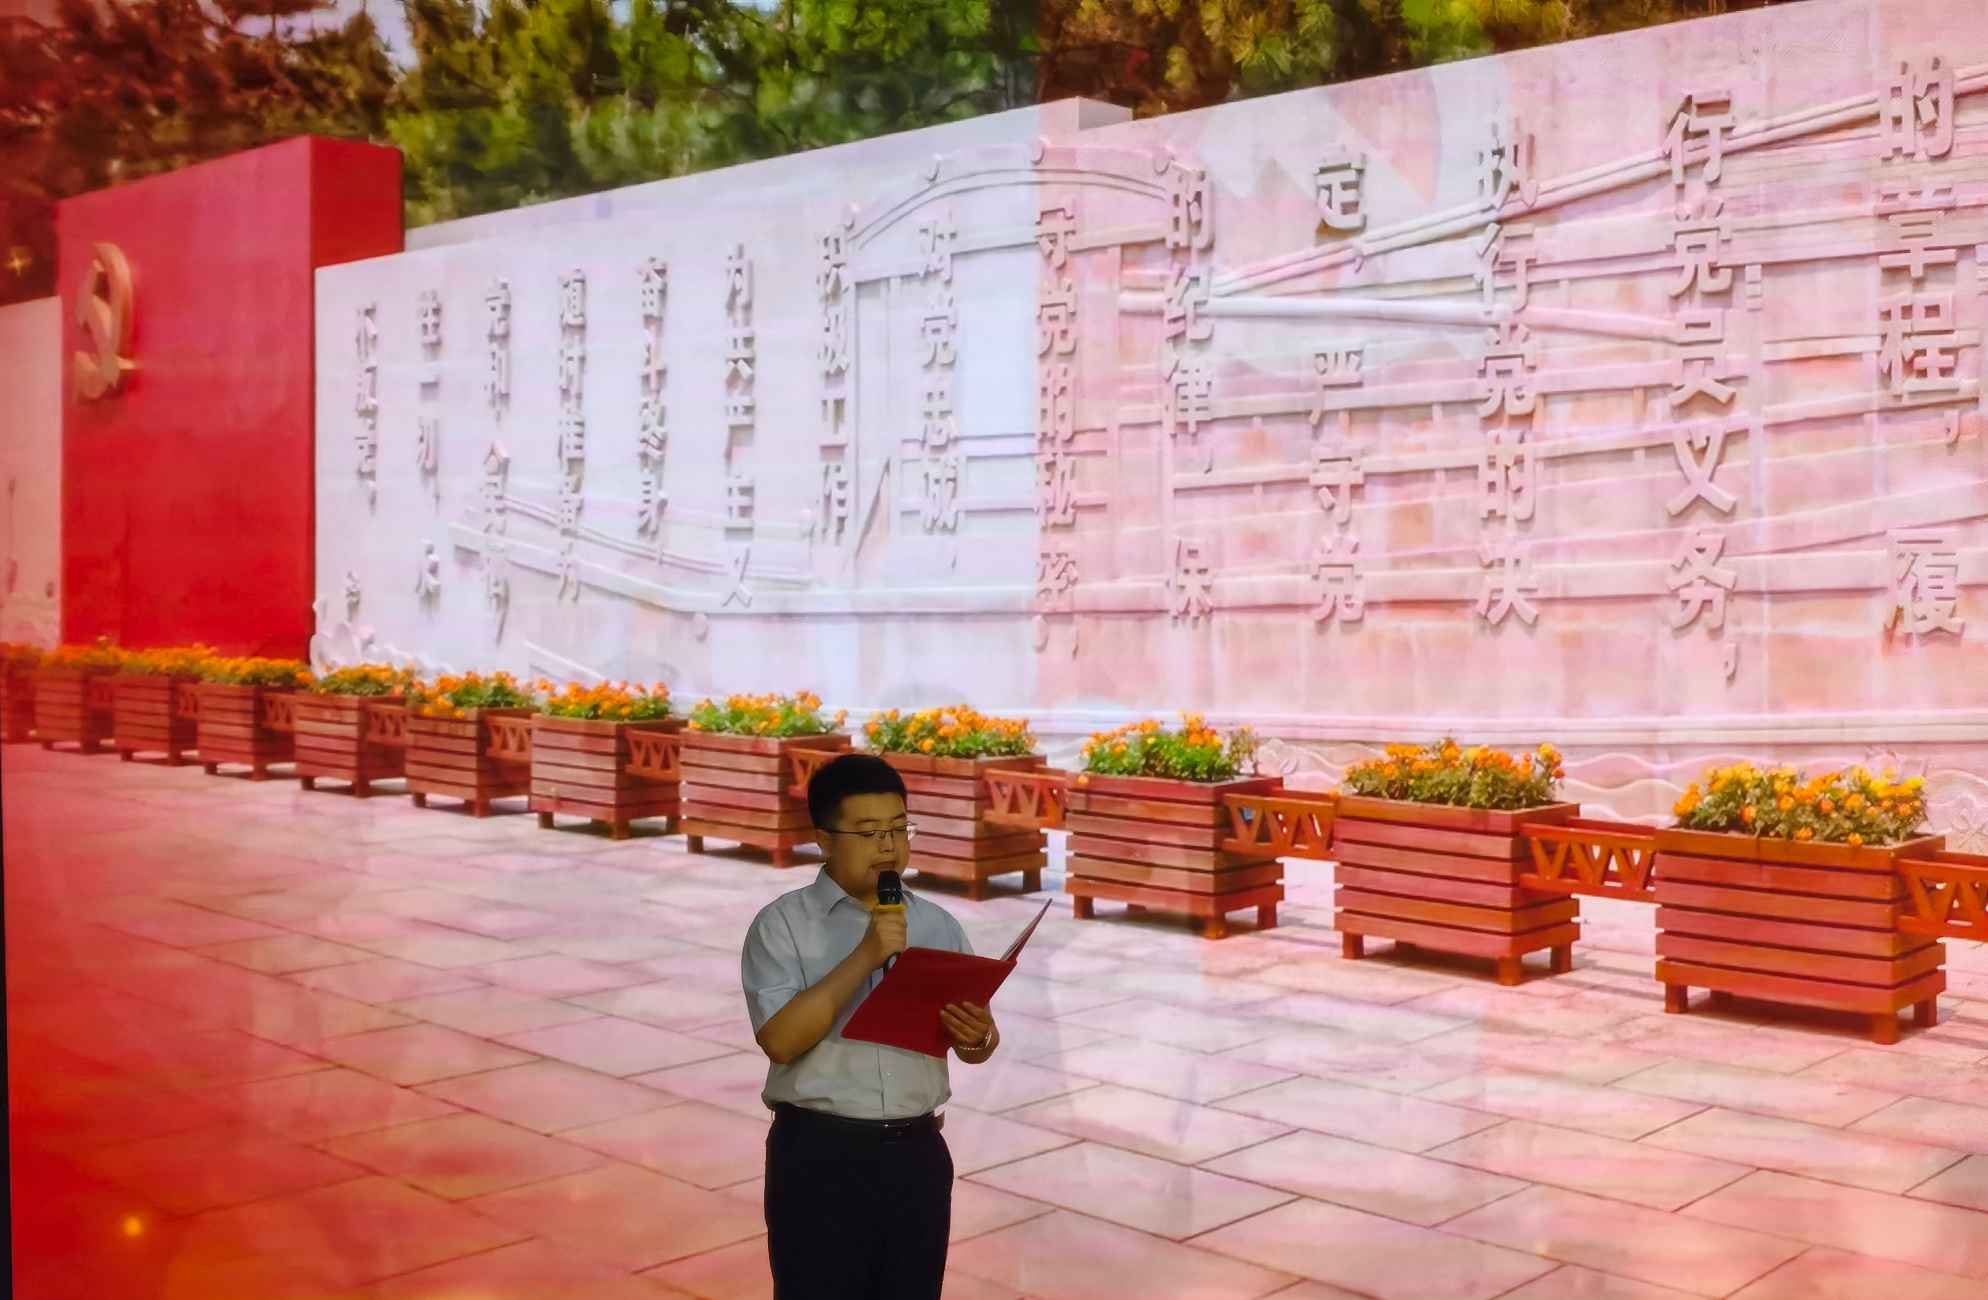 的章程，履
行党员义务，
执行党的决
定 严守党
的纪律，保
守党的秘密，
对党忠诚，
积极工作
为共产主义
奋斗终身，
随时准备为
党和
牲一切，永
不叛党